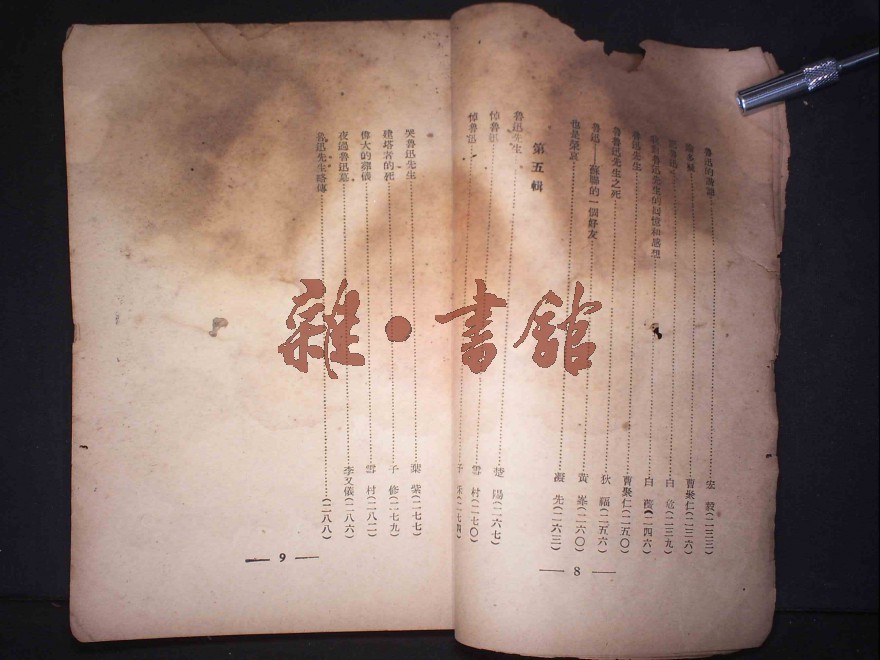 魯迅的 宏　毅(二三三)
曹聚仁(二三六)
白　危(二三九)
魯迅先生的回憶和感想 白　薇(二四六)
魯迅先生 曹聚仁(二五〇)
魯迅先生之死 狄　福(二五六)
魯迅——蘇聯的一個好友 黃　峯(二六〇)
也是榮哀 凝　先(二六三)
第五輯
魯迅先生 楚　陽(二六七)
悼魯迅 雪　村(二七〇)
悼魯迅 子
— 8 —
哭魯迅先生 葉　紫(二七七)
建塔者的死 子　修(二七九)
偉大的葬儀 雪　村(二八二)
夜過魯迅墓 李又儀(二八六)
魯迅先生略傳 (二八八)
— 9 —
雜·書館